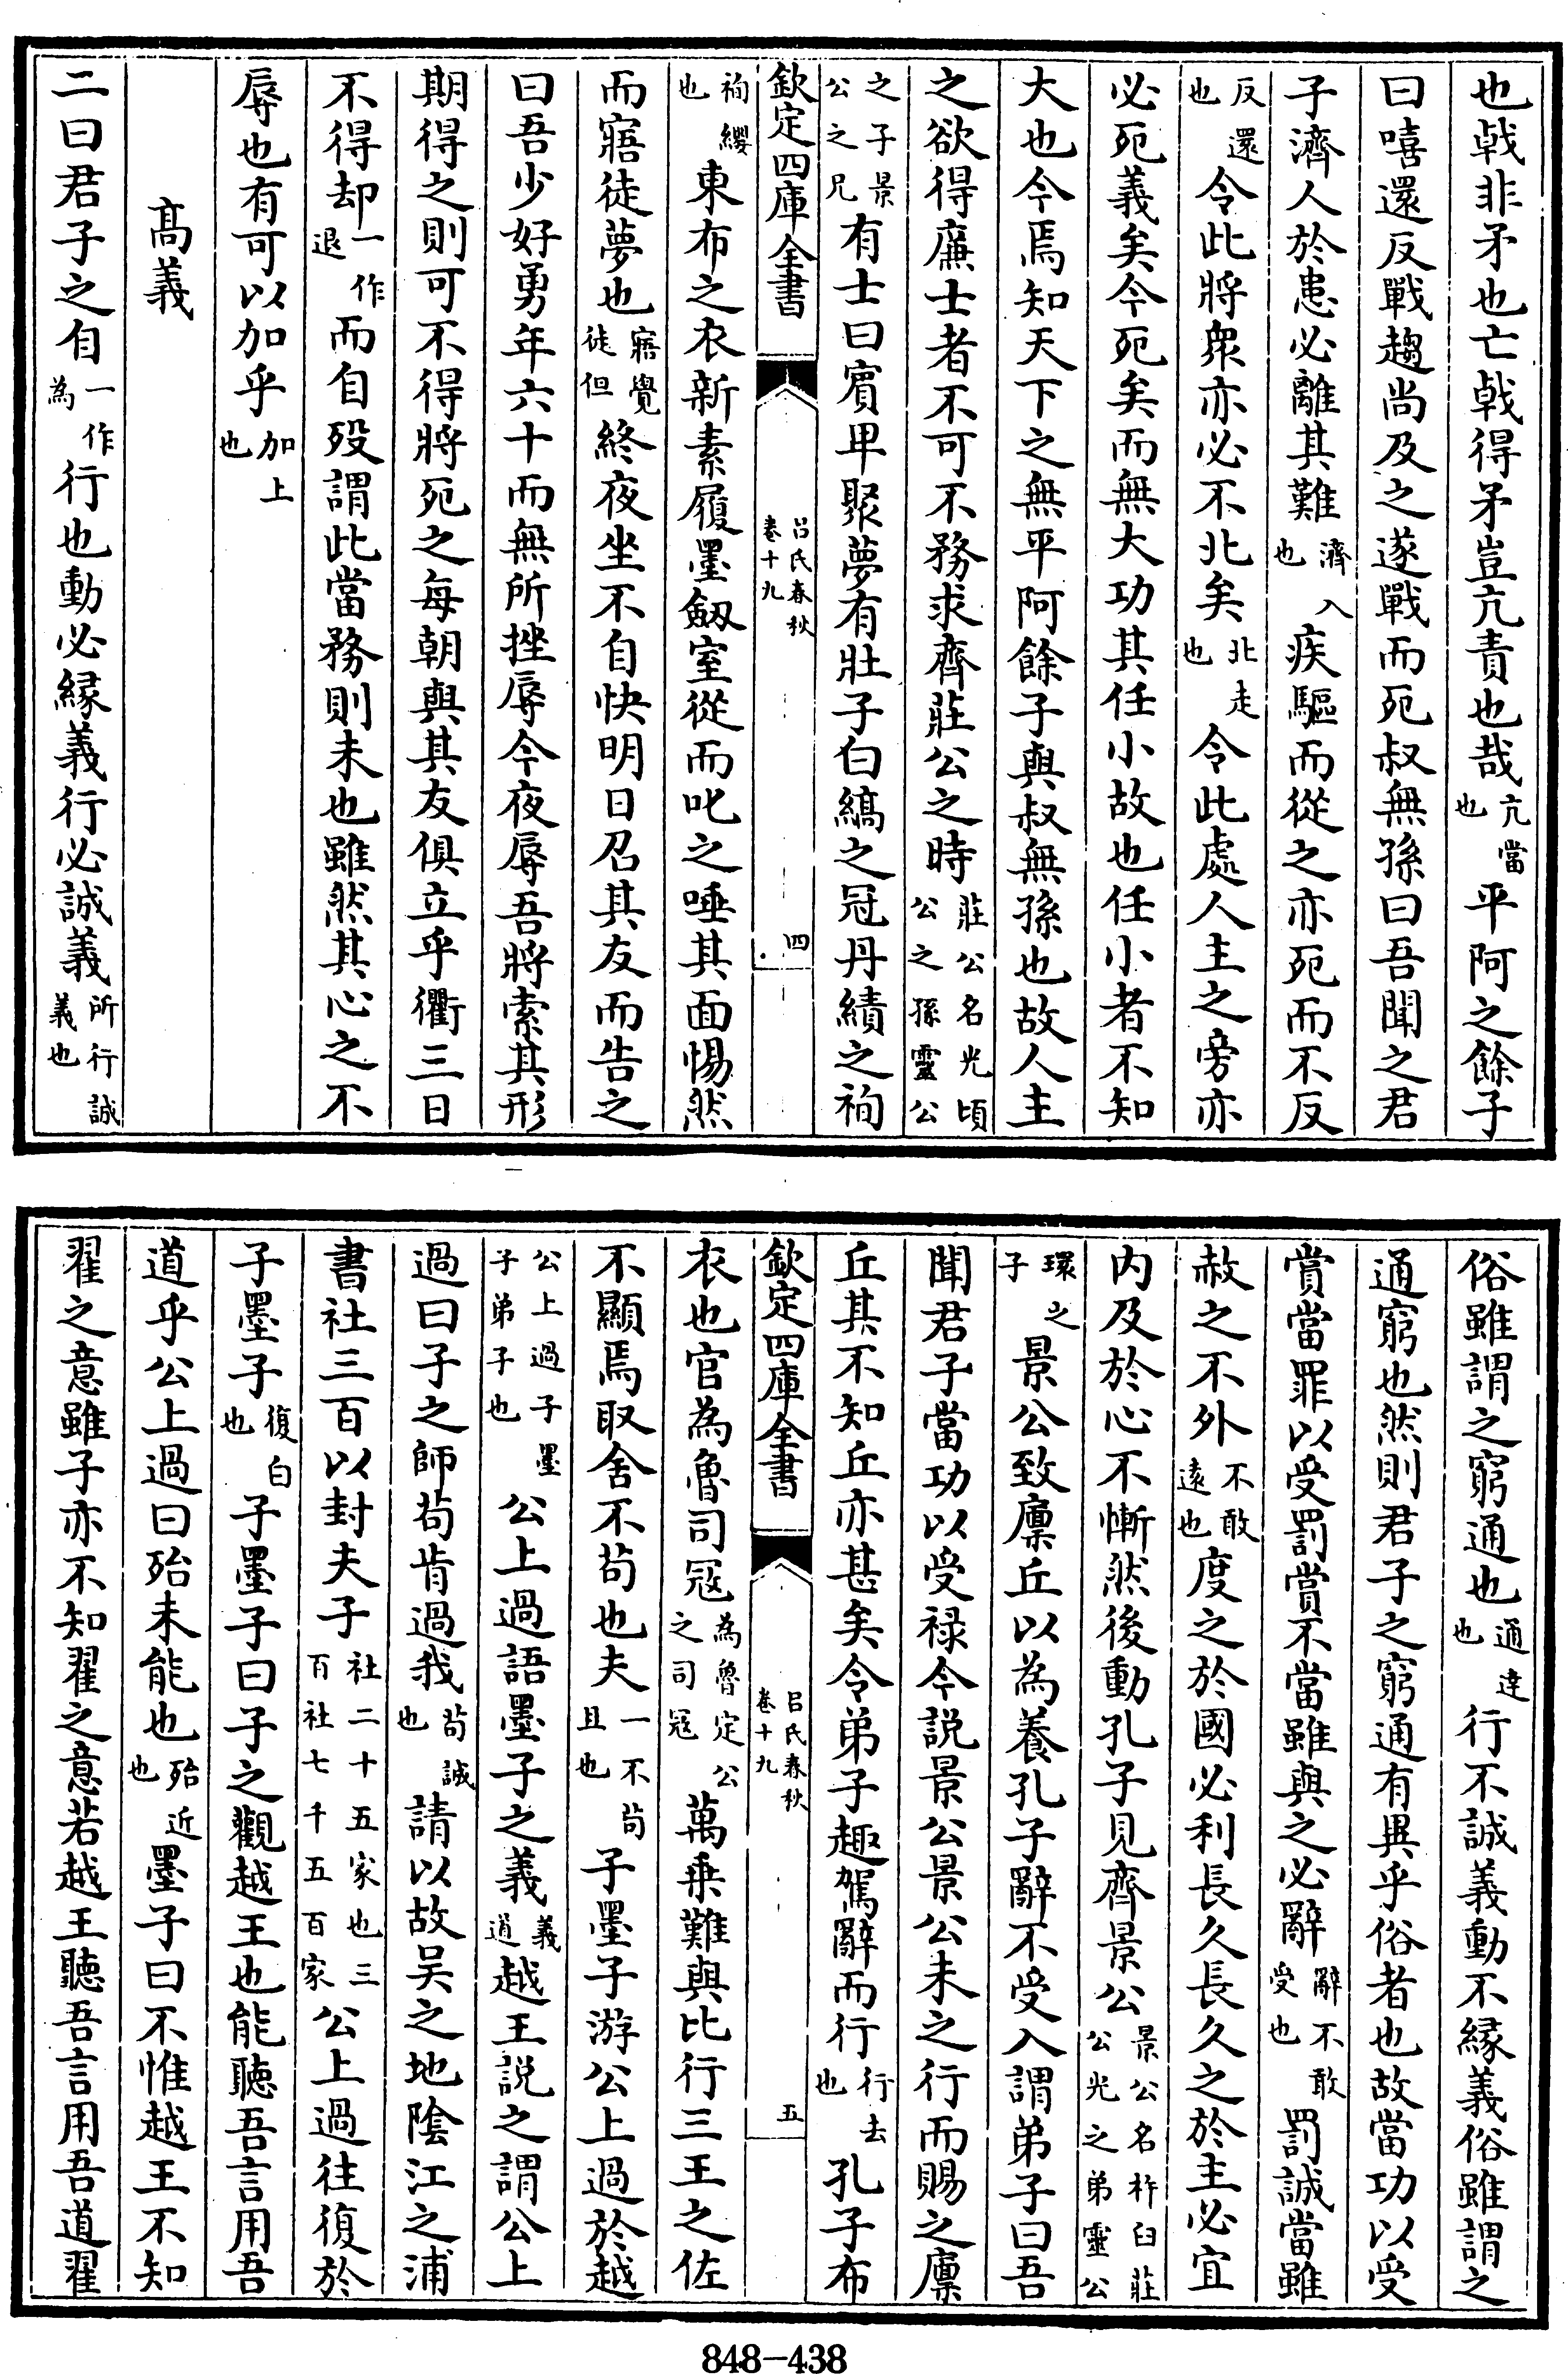 也㦸非矛也亡㦸得矛豈亢責也哉亢當也平阿之餘子
曰嘻還反戰趨尚及之遂戰而死叔無孫曰吾聞之君
子濟人於患必離其難濟入也疾驅而從之亦死而不反
反還也令此將衆亦必不北矣北走也令此處人主之旁亦
必死義矣今死矣而無大功其任小故也任小者不知
大也今焉知天下之無平阿餘子與叔無孫也故人主
之欲得廉士者不可不務求齊莊公之時莊公名光頃公之孫靈公
之子景公之兄有士曰賔卑聚夢有壯子白縞之冠丹績之袧
欽定四庫全書
吕氏春秋
卷十九
四
袧纓也東布之衣新素履墨劔室從而叱之唾其面惕然
而寤徒夢也寤覺徒但終夜坐不自快明日召其友而告之
曰吾少好勇年六十而無所挫辱今夜辱吾將索其形
期得之則可不得將死之每朝與其友俱立乎衢三日
不得却一作退而自殁謂此當務則未也雖然其心之不
辱也有可以加乎加上也
高義
二曰君子之自一作為行也動必緣義行必誠義所行誠義也
俗雖謂之窮通也通達也行不誠義動不緣義俗雖謂之
通窮也然則君子之窮通有異乎俗者也故當功以受
賞當罪以受罰賞不當雖與之必辭辭不敢受也罰誠當雖
赦之不外不敢逺也度之於國必利長久長久之於主必宜
内及於心不慚然後動孔子見齊景公景公名杵臼莊公光之弟靈公
環之子景公致廩丘以為養孔子辭不受入謂弟子曰吾
聞君子當功以受禄今説景公景公未之行而賜之廩
丘其不知丘亦甚矣令弟子趣駕辭而行行去也孔子布
欽定四庫全書
吕氏春秋
卷十九
五
衣也官為魯司冦為魯定公之司冦萬乗難與比行三王之佐
不顯焉取舍不茍也夫一不茍且也子墨子游公上過於越
公上過子墨子弟子也公上過語墨子之義義道越王説之謂公上
過曰子之師茍肯過我茍誠也請以故吴之地隂江之浦
書社三百以封夫子社二十五家也三百社七千五百家公上過往復於
子墨子復白也子墨子曰子之觀越王也能聽吾言用吾
道乎公上過曰殆未能也殆近也墨子曰不惟越王不知
翟之意雖子亦不知翟之意若越王聽吾言用吾道翟
848-438